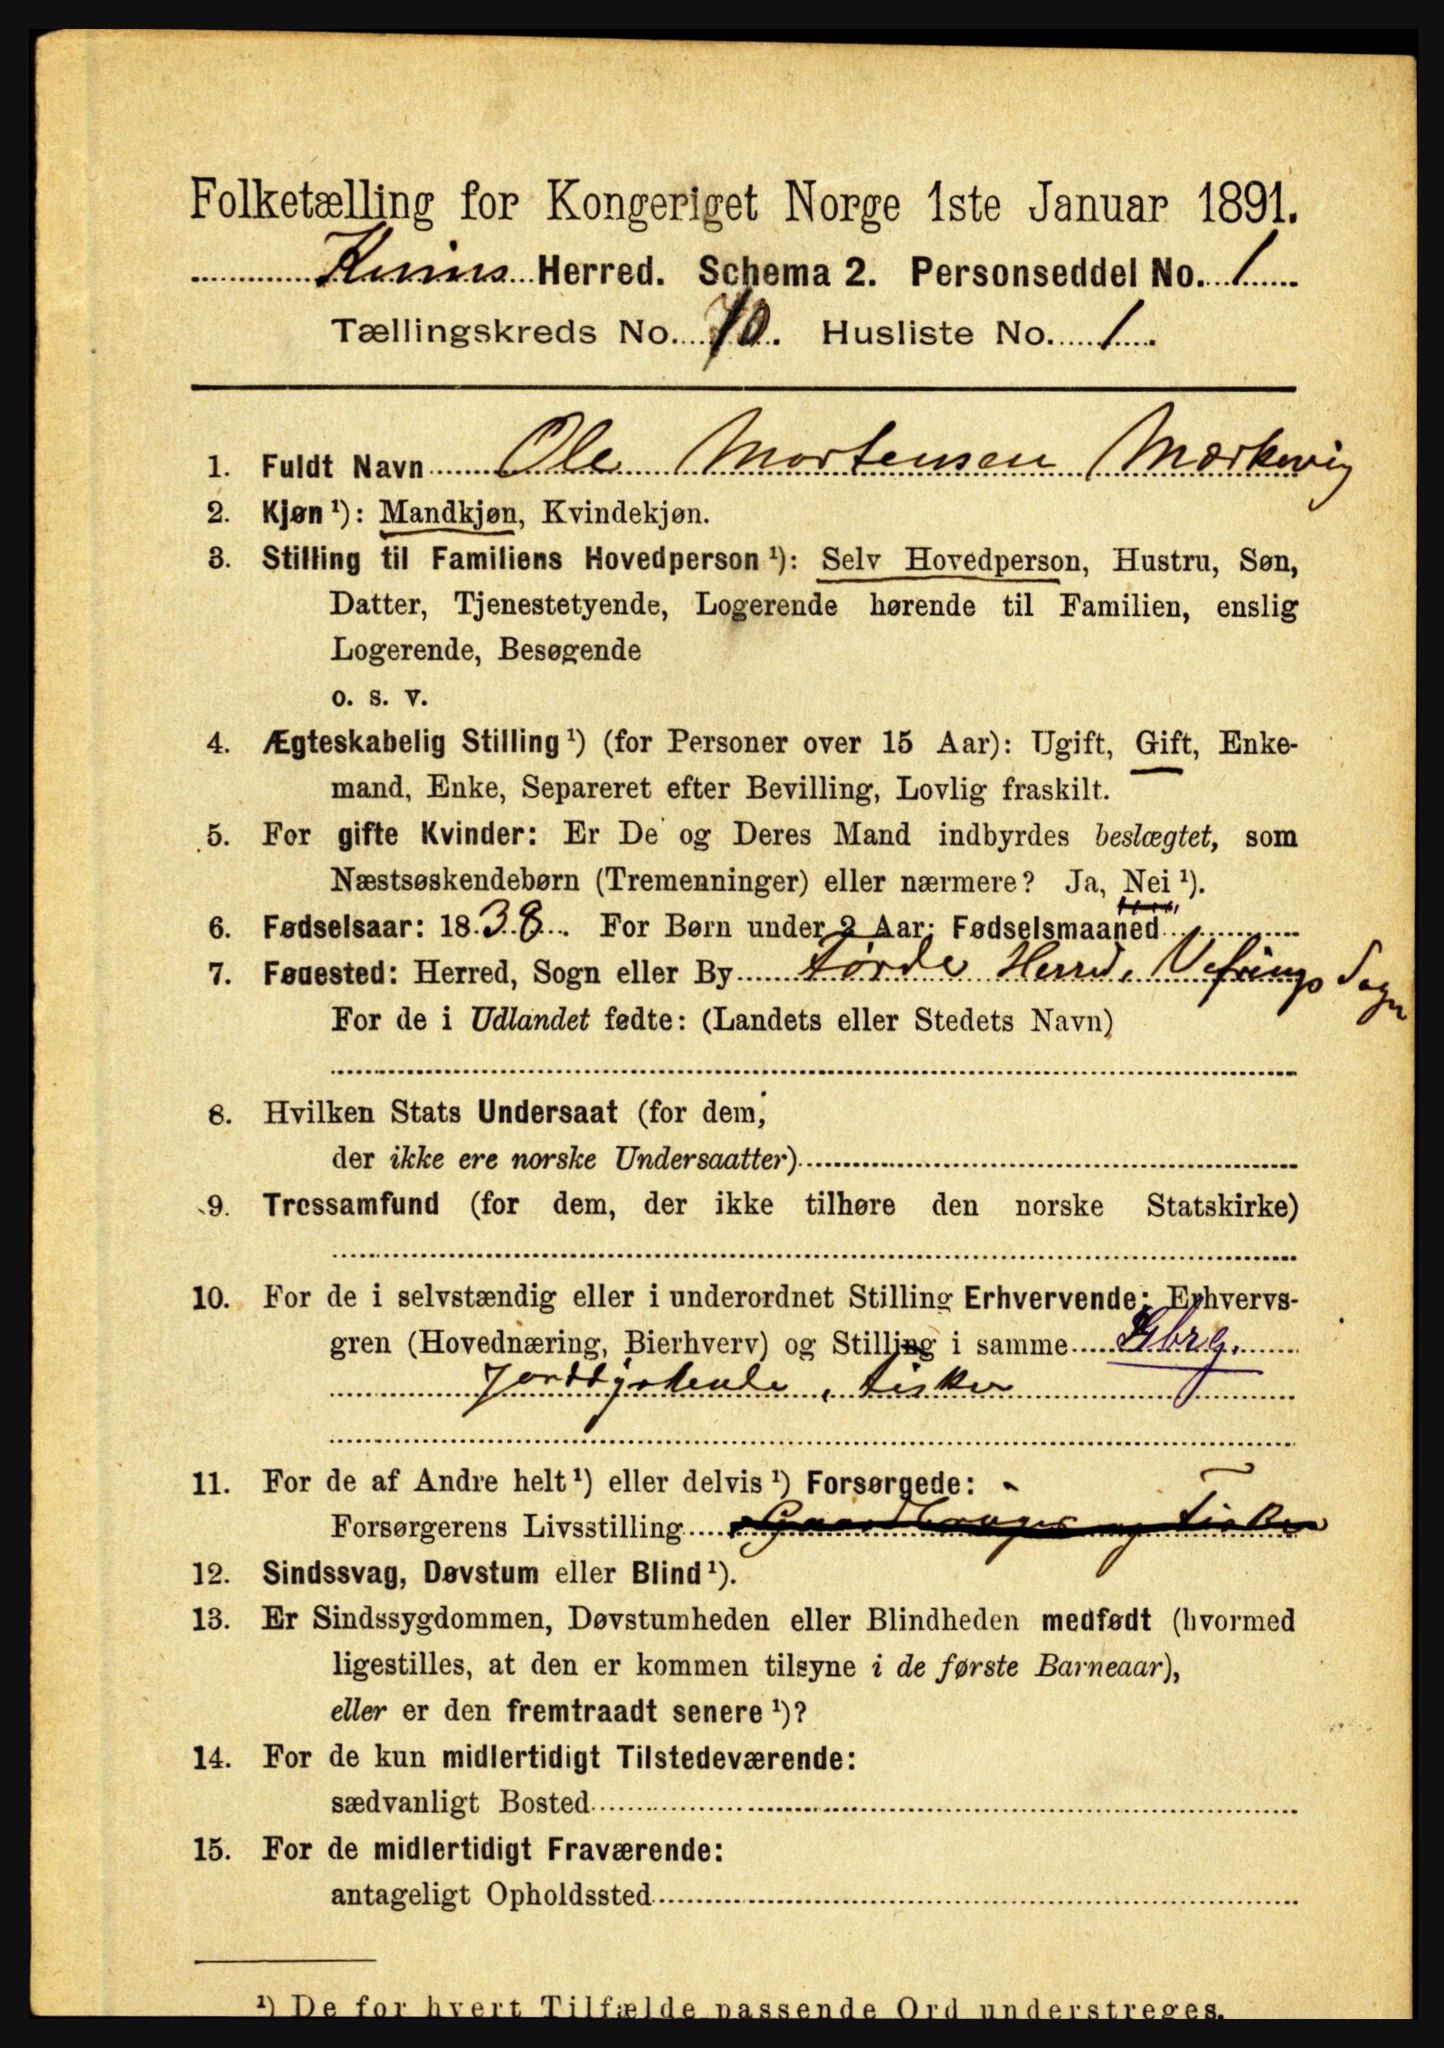 Folketælling for Kongeriget Norge 1ste Januar 1891.
Kinns Herred. Schema 2. Personseddel No. 1
Tællingskreds No. 10. Husliste No. 1.
1. Fuldt Navn Ole Mortensen Markevig
2. Kjøn ¹): Mandkjøn, Kvindekjøn.
3. Stilling til Familiens Hovedperson ¹): Selv Hovedperson, Hustru, Søn,
Datter, Tjenestetyende, Logerende hørende til Familien, enslig
Logerende, Besøgende
o. s. v.
4. Ægteskabelig Stilling ¹) (for Personer over 15 Aar): Ugift, Gift, Enke-
mand, Enke, Separeret efter Bevilling, Lovlig fraskilt.
5. For gifte Kvinder: Er De og Deres Mand indbyrdes beslægtet, som
Næstsøskendebørn (Tremenninger) eller nærmere? Ja, Nei ¹).
6. Fødselsaar: 1838. For Børn under 2 Aar: Fødselsmaaned
7. Fødested: Herred, Sogn eller By Førde Herred, Vefrings Sogn
For de i Udlandet fødte: (Landets eller Stedets Navn)
8. Hvilken Stats Undersaat (for dem,
der ikke ere norske Undersaatter)
9. Trossamfund (for dem, der ikke tilhøre den norske Statskirke)
10. For de i selvstændig eller i underordnet Stilling Erhvervende: Erhvervs-
gren (Hovednæring, Bierhverv) og Stilling i samme Gbrg.
Jorddyrkende, fisker
11. For de af Andre helt ¹) eller delvis ¹) Forsørgede:
Forsørgerens Livsstilling Gaardbruger og Fisker
12. Sindssvag, Døvstum eller Blind ¹).
13. Er Sindssygdommen, Døvstumheden eller Blindheden medfødt (hvormed
ligestilles, at den er kommen tilsyne i de første Barneaar),
eller er den fremtraadt senere ¹)?
14. For de kun midlertidigt Tilstedeværende:
sædvanligt Bosted
15. For de midlertidigt Fraværende:
antageligt Opholdssted
¹) De for hvert Tilfælde passende Ord understreges.